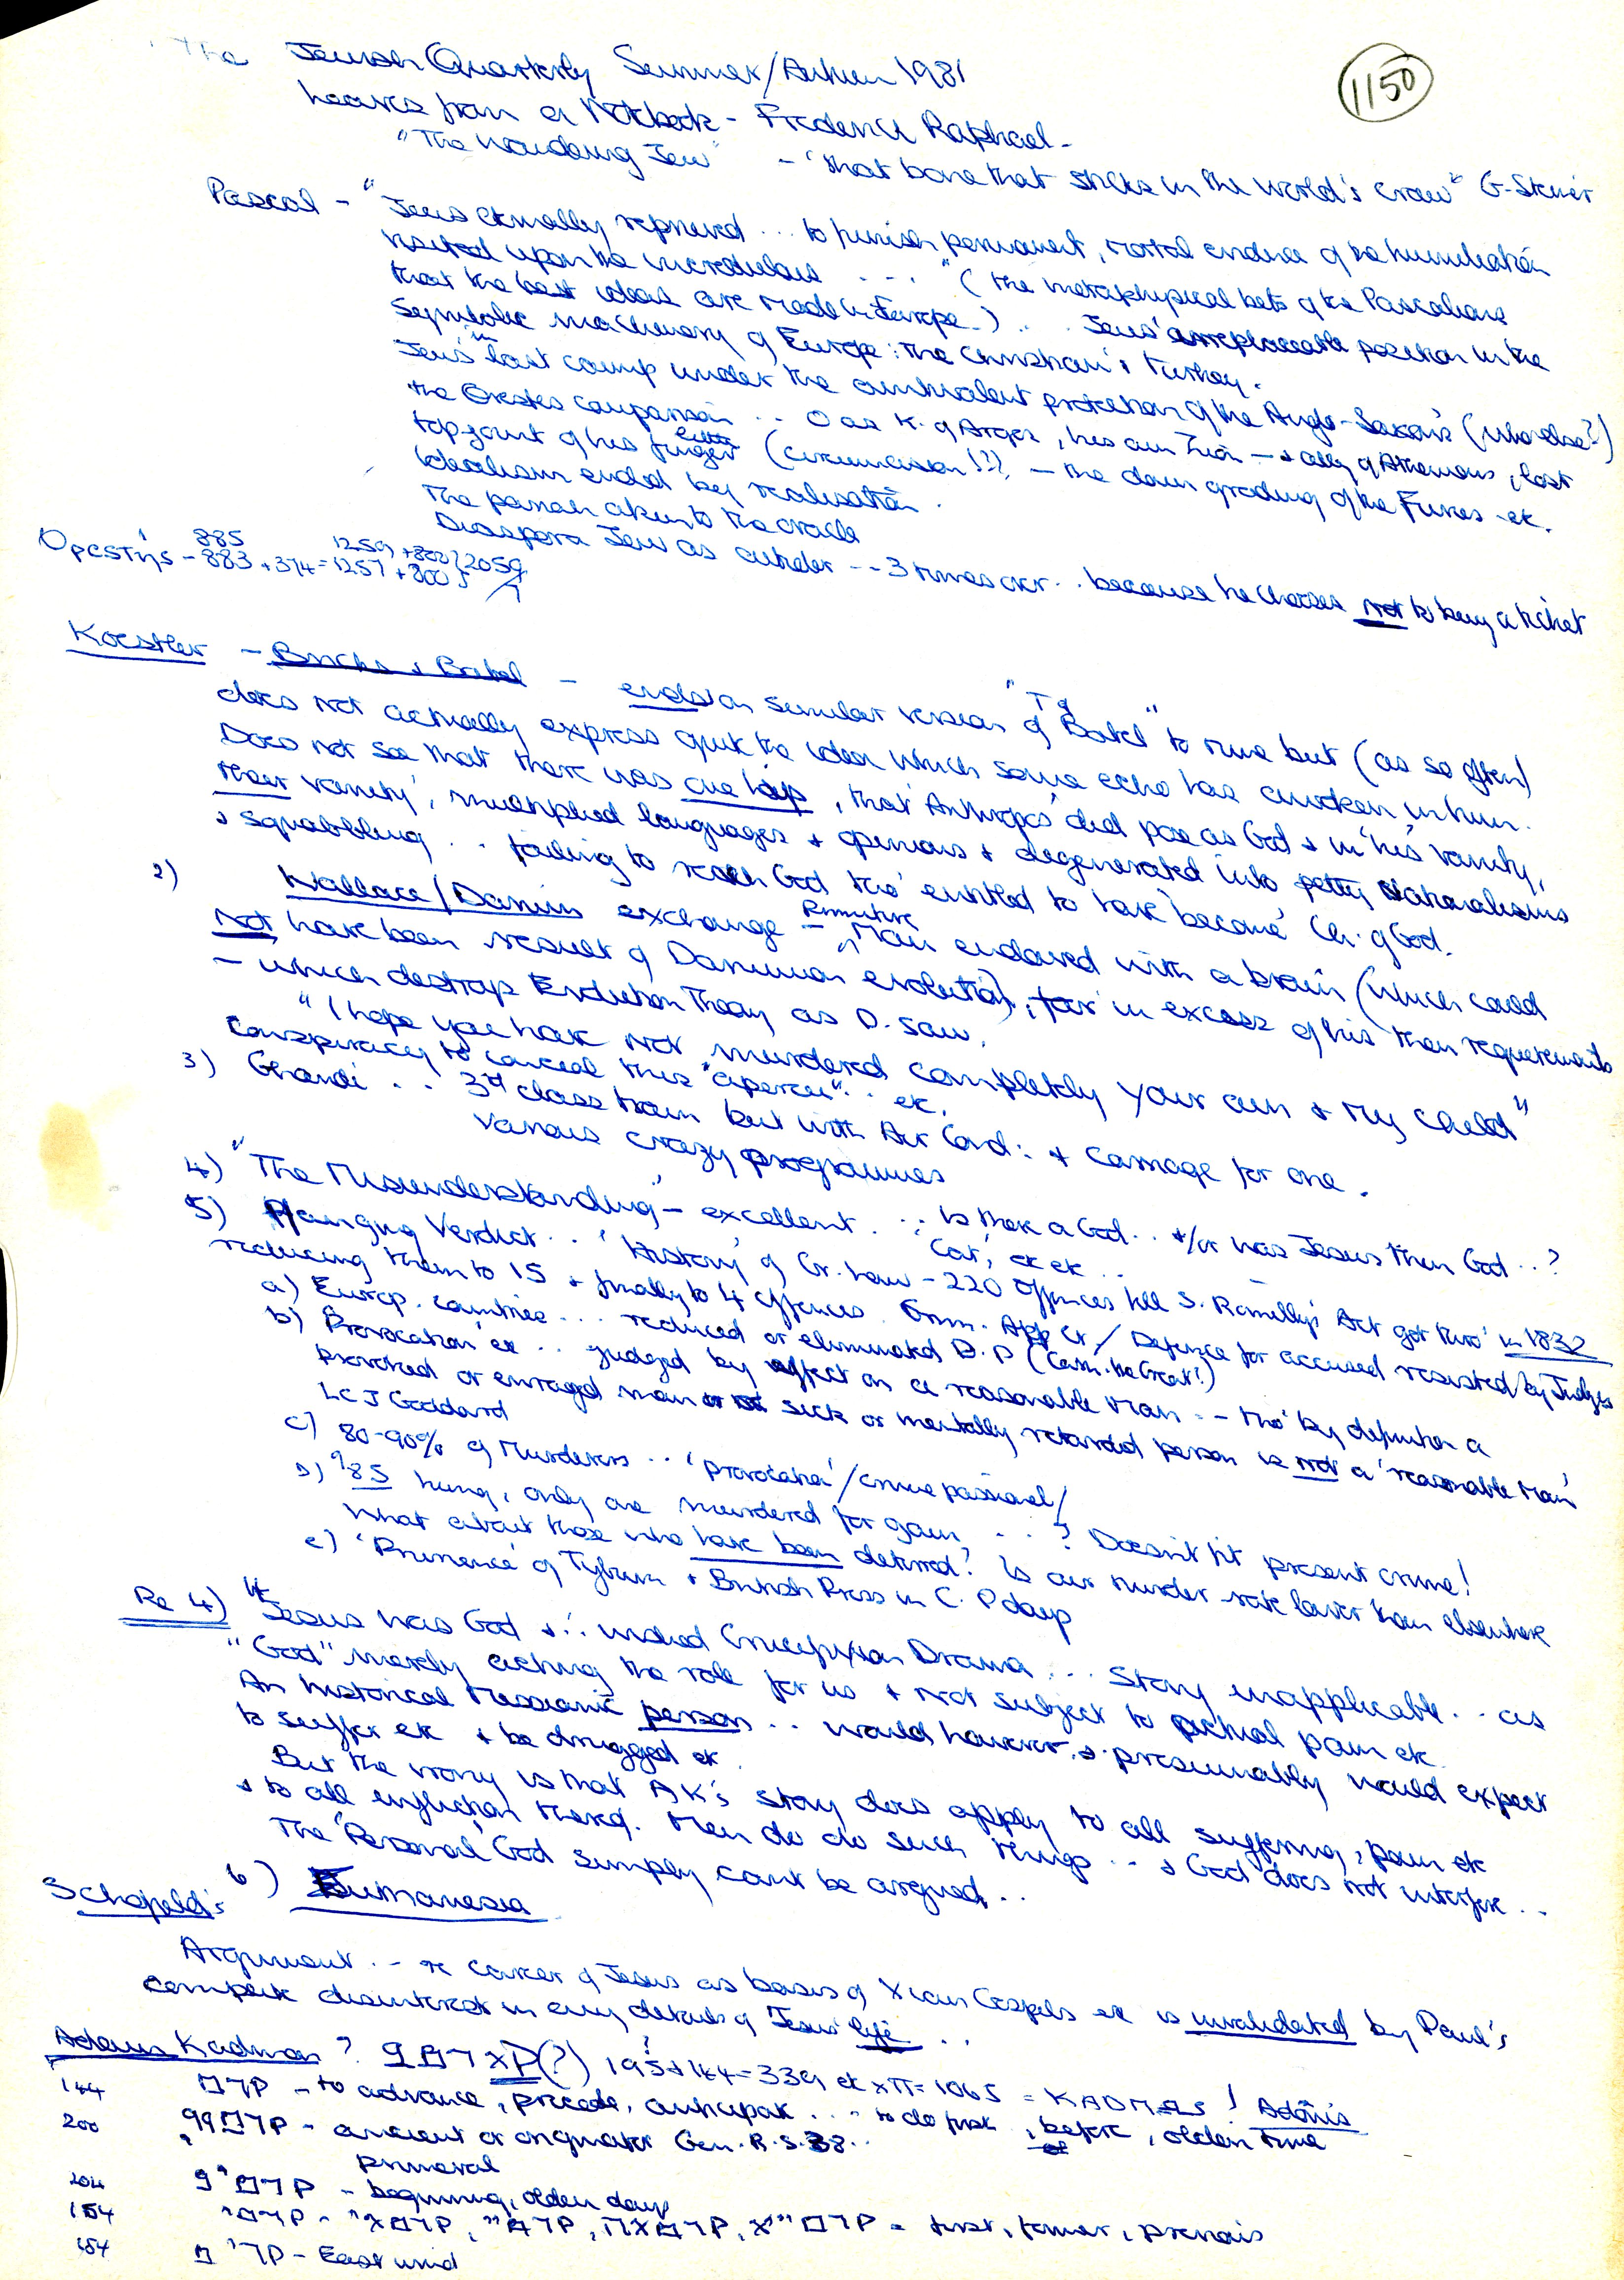 The Jewish Quarterly Summer/Autumn 1981
1150
Leaves from a Notebook - Frederic Raphael -
"The Wandering Jew" - 'that bone that sticks in the world's craw" G. Steiner
Pascal - "Jews eternally reprieved ... to furnish permanent, mortal evidence of the humiliation
visited upon the incredulous ... " (the metaphysical bets of the Pascalians
that the best ideas are made in Europe -) .. Jews' irreplaceable position in the
symbolic machinery of Europe: the Christian's Turkey.
Jews in last camp under the ambivalent protection of the Anglo-Saxons (who else?)
the Orestes comparison .. O as K. of Argos, his own Zion - & ally of Athenians, lost
top joint of his little finger (circumcision!?) - the down grading of the Furies etc.
Idealism ended by realisation.
The pariah akin to the oracle
Diaspora Jew as outsider -- 3 times over .. because he chooses not to buy a ticket
885 1259 + 800 } 2059
Ορεστης - 883 + 374 = 1257 + 800 } 7
Koestler - Bricks & Babel - ends on similar version of "T of Babel" to mine but (as so often)
does not actually express quite the idea which some echo has awoken in him.
Does not see that there was one lip, that 'Anthropos' did pose as God & in 'his' vanity,
their vanity, multiplied languages & opinions & degenerated into petty nationalisms
& squabbling .. failing to reach God tho' entitled to have 'become' Ch. of God.
2) Wallace/Darwin exchange - Primitive Man endowed with a brain (which could
Not have been result of Darwinian evolution), far in excess of his then requirements
- which destroys Evolution Theory as D. saw.
"I hope you have not murdered completely your own & my child"
Conspiracy to conceal this "apercu" .. etc.
3) Ghandi .. 3rd class train but with Air Cond: & carriage for one.
various crazy programmes
4) "The Misunderstanding" - excellent ... Is there a God .. &/or was Jesus then God ..?
5) Hanging Verdict .. 'History' of Cr. Law - 220 offences till S. Romilly's Act got thro' in 1832
reducing them to 15 & finally to 4 offences. Crim. App Ct / Defence for accused resisted by Judges
a) Europ. countries ... reduced or eliminated D.P (Cath. the Great?)
b) Provocation etc .. judged by effect on a reasonable man - tho' by definition a
provoked or enraged man or sick or mentally retarded person is not a 'reasonable man'
LCJ Goddard
c) 80-90% of Murderers .. 'provocation'/crime passionel/
D) '85 hung, only one murdered for gain ..? Doesn't fit present crime!
What about those who have been deterred? Is our murder rate lower than elsewhere
e) 'Prurience' of Tyburn & British Press in C. P days
Re 4) If Jesus was God & ∴ indeed Crucifixion Drama ... Story inapplicable .. as
"God" merely acting the role for us & not subject to actual pain etc
An historical Messianic person .. would however & presumably would expect
to suffer etc & be drugged etc
But the irony is that AK's story does apply to all suffering, pain etc
& to all infliction thereof. Men do do such things .. & God does not interfere ..
The 'Personal' God simply can't be argued ..
6) Eumanesia
Schofield's
Argument .. re career of Jesus as basis of Xian Gospels etc is invalidated by Paul's
complete disinterest in any details of Jesus' life ..
Adam Kadmon? (?) 195 + 144 = 339 etc x π = 1065 = KADMOS! Adonis
144 קדם - to advance, precede, anticipate ... to do first, before, olden time
200 - ancient or originator Gen. R. S. 38..
primeval
204 - beginning, olden days
154 = first, former, previous
154 - East wind